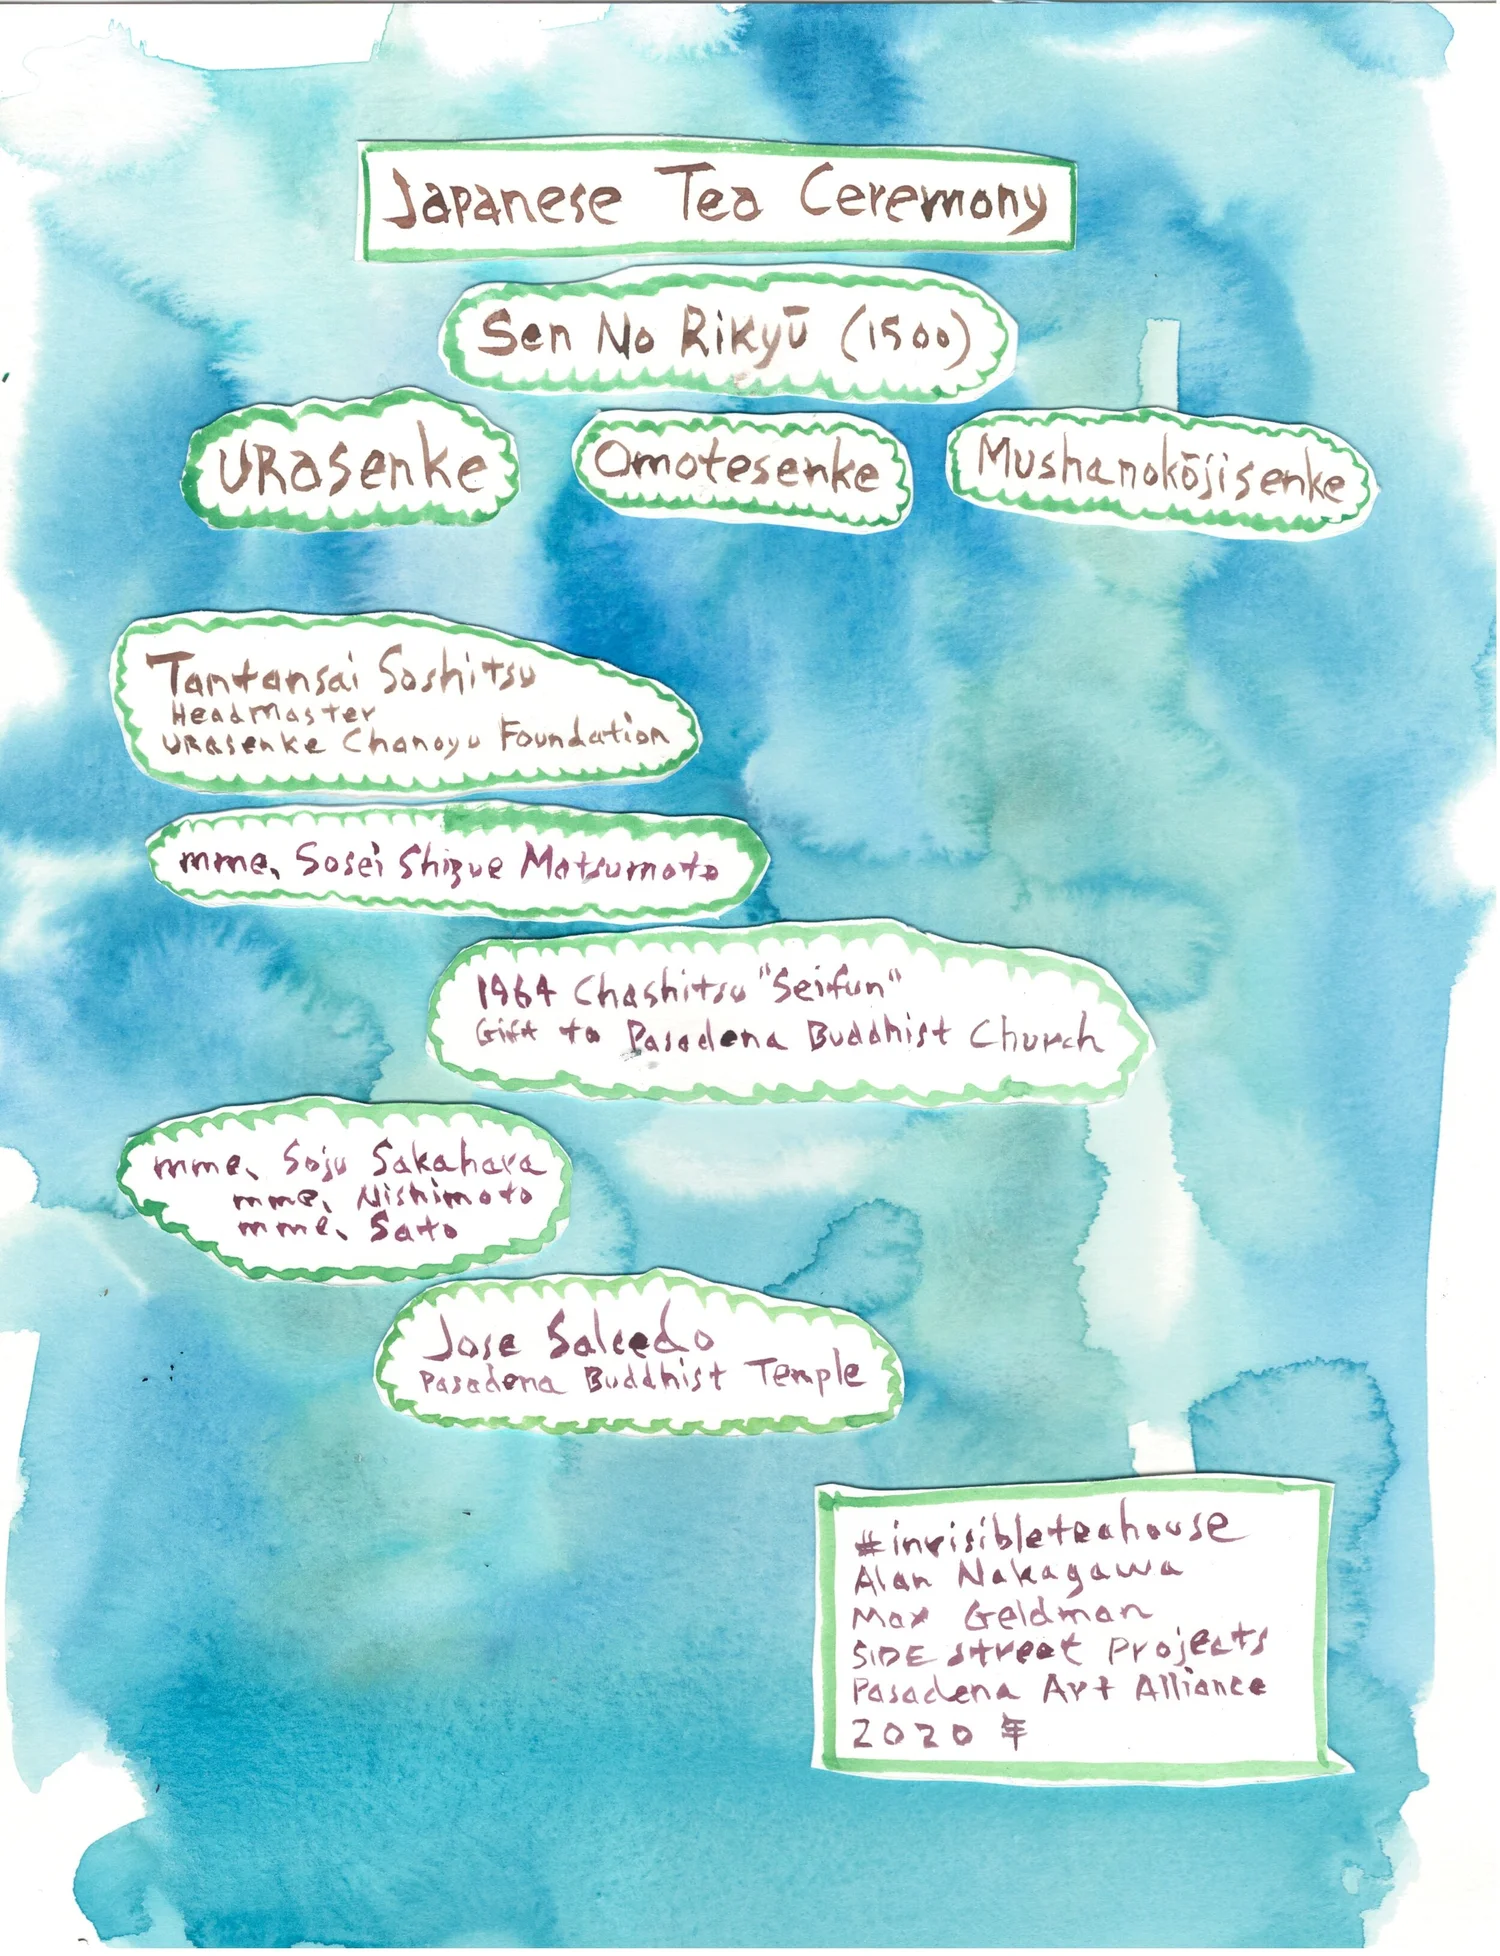 Japanese Tea Ceremony
Sen No Rikyū (1500)
Urasenke
Omotesenke
Mushanokōjisenke
Tantansai Soshitsu
HeadMaster
Urasenke Chanoyu Foundation
mme. Sosei Shizue Matsumoto
1964 Chashitsu "Seifun"
Gift to Pasadena Buddhist Church
mme. Soju Sakahara
mme. Nishimoto
mme. Sato
Jose Salcedo
Pasadena Buddhist Temple
#invisibleteahouse
Alan Nakagawa
Max Geldman
SIDE street Projects
Pasadena Art Alliance
2020 年